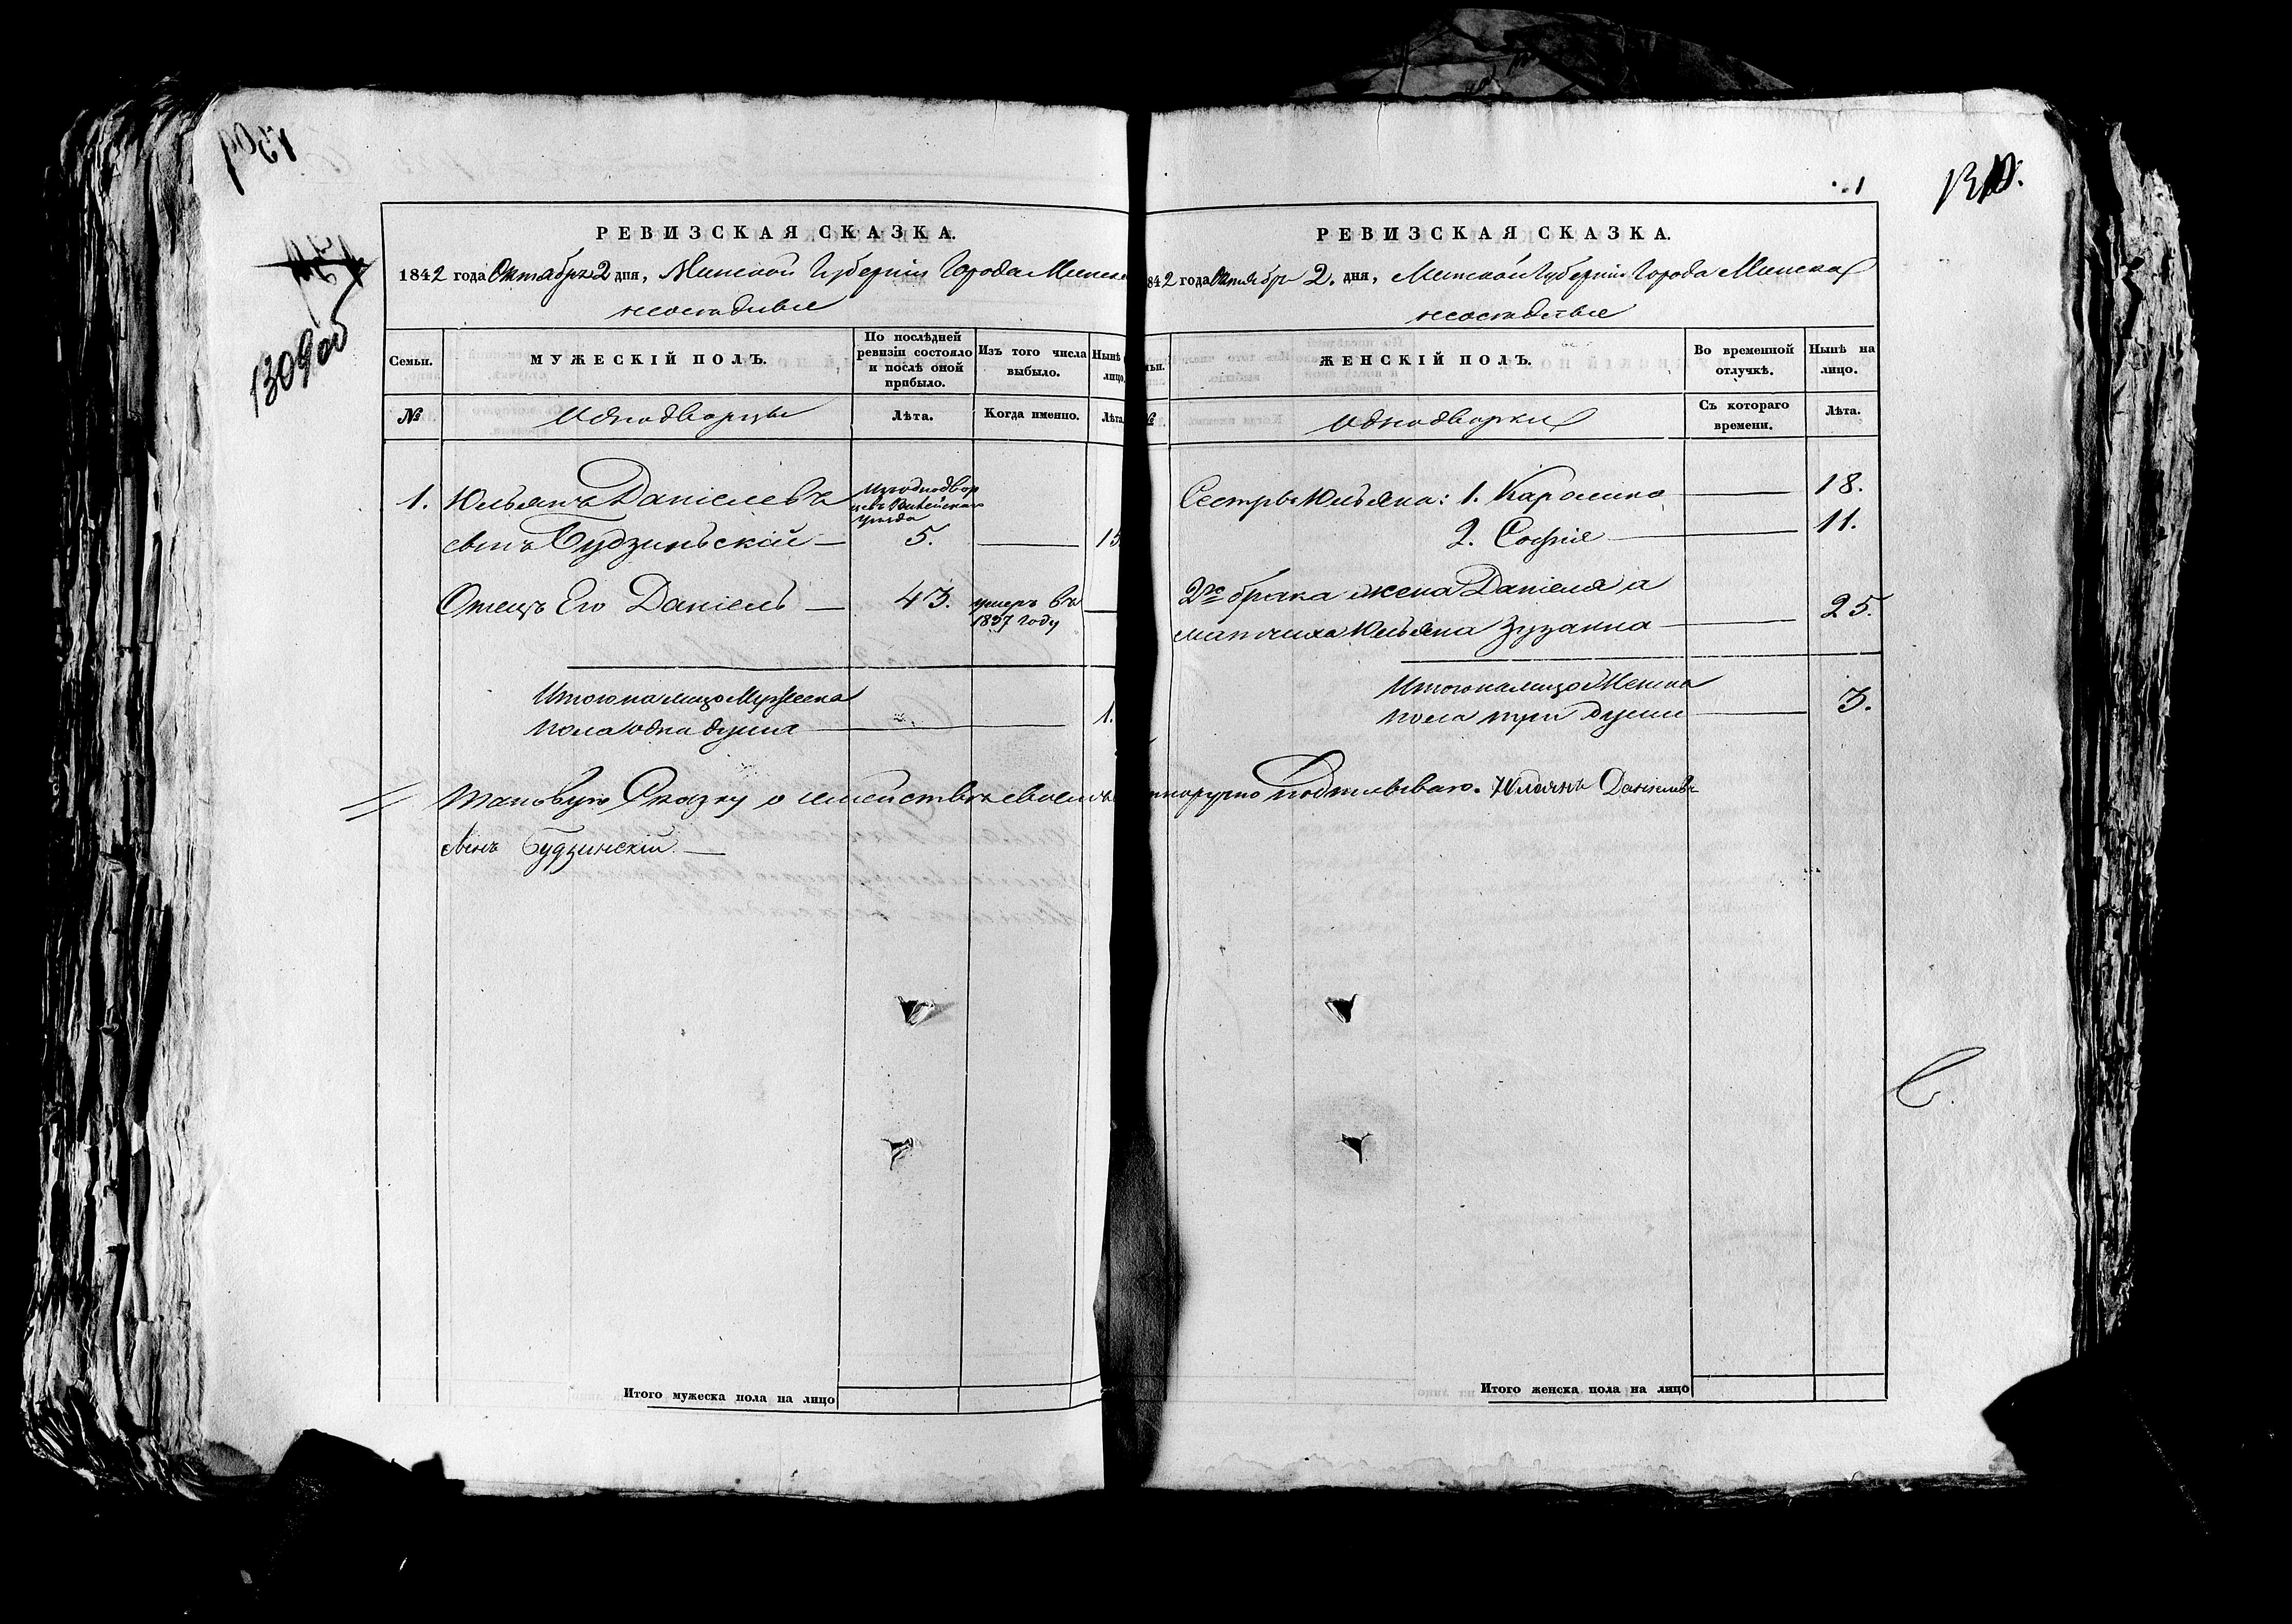 1309
1309 об
РЕВИЗСКАЯ СКАЗКА.
1842 года Октября 2 дня, Минской Губернiи Города Минска
неоседлые
Семьи.
МУЖЕСКІЙ ПОЛЪ.
По послѣдней ревизіи состояло и послѣ оной прибыло.
Изъ того числа выбыло.
Нынѣ
лицо
№
Однодворцы
Лѣта.
Когда именно.
Лѣта
1. Юльянъ Данiелевъ
Изъ однодвор
цевъ Вилейскаго
уѣзда
сынъ Будзиньскiй — 5. — 15
Отецъ Его Данiель — 43. умеръ въ
1837 году
Итого на лицо Мужеска
пола одна душа — 1.
Таковую Сказку о семействѣ своемъ
сынъ Будзинскiй. —
Итого мужеска пола на лицо
1
1310.
РЕВИЗСКАЯ СКАЗКА.
842 года Октября 2. дня, Минской Губернiи Города Минска
неоседлые
ьи.
ЖЕНСКІЙ ПОЛЪ.
Во временной отлучкѣ.
Нынѣ на лицо.
№
Однодворки
Съ котораго времени.
Лѣта.
Сестры Юльяна: 1. Каролина — 18.
2. Софiя — 11.
2го брака жена Данiеля а
мачиха Юльяна Зузанна — 25.
Итого на лицо Женска
пола три души — 3.
норучно подписываю. Юльянъ Данiелевъ
Итого женска пола на лицо